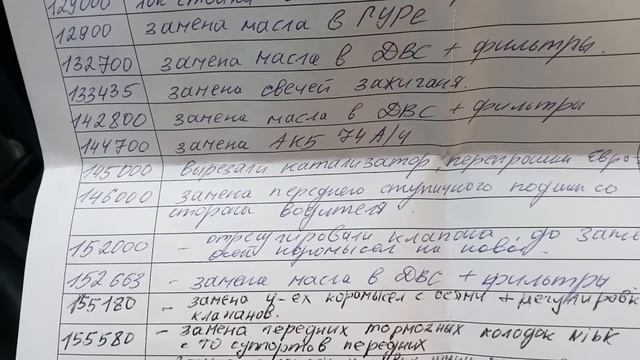 129000
12900 замена масла в ГУРе
132700 замена масла в ДВС + фильтры.
133435 замена свечей зажигания.
142800 замена масла в ДВС + фильтры
144700 замена АКБ 74 А/ч
145000 вырезали катализатор, перепрошили Евро-
146000 замена переднего ступичного подшип со
стороны водителя.
152000 - отрегулировали клапана, до
коромысел на ново
152663 - замена масла в ДВС + фильтры
155180 - замена 4-ех коромысел с осями + регулировк
клапанов.
155580 - замена передних тормозных колодок Nibk
с ТО суппортов передних